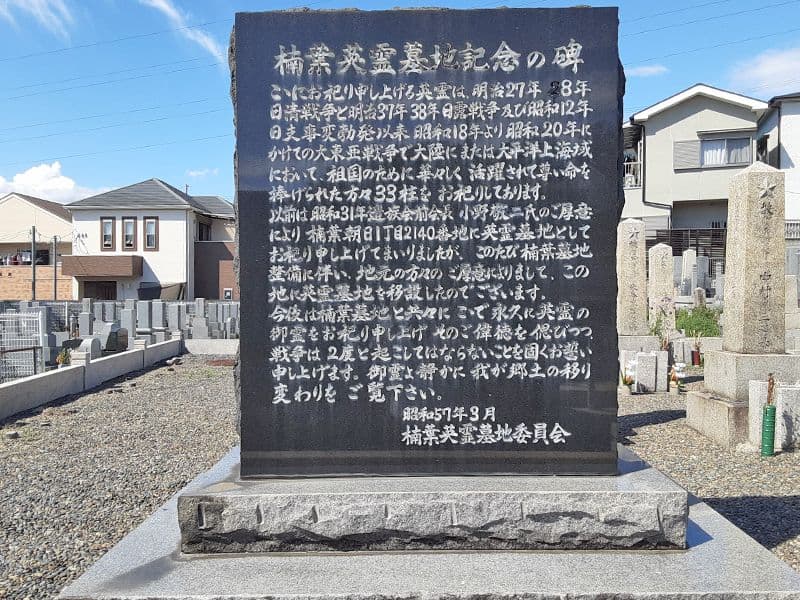 楠葉英霊墓地記念の碑
こゝにお祀り申し上げる英霊は、明治27年28年
日清戦争と明治37年38年日露戦争及び昭和12年
日支事変勃発以来昭和18年より昭和20年に
かけての大東亜戦争で大陸にまたは太平洋上海域
において、祖国のために華々しく活躍されて尊い命を
捧げられた方々33柱をお祀りしております。
以前は昭和31年遺族会前会長小野敬二氏のご厚意
により楠葉朝日1丁目2140番地に英霊墓地として
お祀り申し上げてまいりましたが、このたび楠葉墓地
整備に伴い、地元の方々のご厚意によりまして、この
地に英霊墓地を移設したのでございます。
今後は楠葉墓地と共々にこゝで永久に英霊の
御霊をお祀り申し上げそのご偉徳を偲びつつ
戦争は2度と起こしてはならないことを固くお誓い
申し上げます。御霊よ静かに我が郷土の移り
変わりをご覧下さい。
昭和57年3月
楠葉英霊墓地委員会